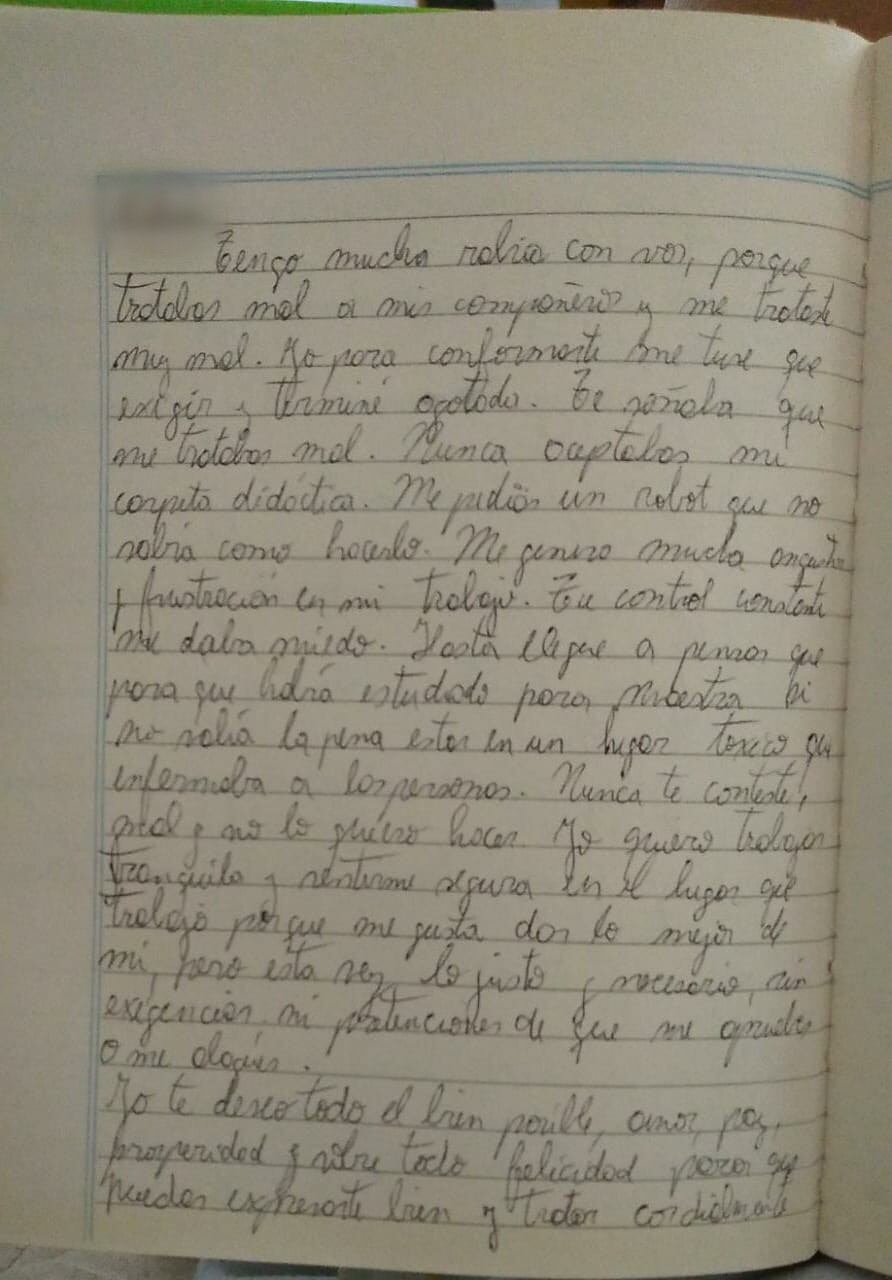 Tengo mucha rabia con vos, porque
tratabas mal a mis compañeros y me trataste
muy mal. Yo para conformarte me tuve que
exigir y terminé agotada. Te soñaba que
me tratabas mal. Nunca aceptabas mi
carpeta didáctica. Me pedias un robot que no
sabía como hacerlo. Me genero mucha angustia
y frustración en mi trabajo. Tu control constante
me daba miedo. Hasta llegue a pensar que
para que habrá estudiado para maestra si
no valía la pena estar en un lugar toxico que
enfermaba a las personas. Nunca te conteste,
mal y no lo quiero hacer. Yo quiero trabajar
tranquila y sentirme segura en el lugar que
trabajo porque me gusta dar lo mejor de
mi, pero esta vez, lo justo y necesario, sin
exigencias ni pretenciones de que me apruebes
o me alagues.
Yo te deseo todo el bien posible, amor, paz,
prosperidad y sobre todo felicidad para que
puedas expresarte bien y tratar cordialmente